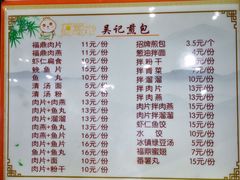 吴记煎包
福鼎肉片 11元/份
福鼎肉燕 11元/份
虾仁扁食 11元/份
鱿鱼片 11元/份
鱼丸 11元/份
清汤面 5元/份
清汤粉 5元/份
肉片+肉燕 13元/份
肉片+鱼丸 13元/份
肉片+溜溜 13元/份
肉燕+鱼丸 13元/份
肉燕+溜溜 13元/份
肉片+粉 13元/份
肉片+面 13元/份
肉片+粉干 13元/份
招牌煎包 3.5元/个
葱油拌面 8元/份
拌粉干 10元/份
拌青菜 10元/份
拌溜溜 10元/份
拌肉片 15元/份
拌肉燕 15元/份
肉片拌肉燕 15元/份
拌鱼丸 15元/份
虾仁鱼饺 15元/份
水饺 10元/份
冰镇绿豆汤 5元/份
福鼎蜜姐 7元/份
番薯丸 15元/份